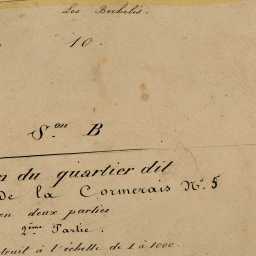 Les Bechelis.
10.
S.on B
n du quartier dit
de la Cormerais N.° 5
en deux parties
2ème Partie.
xtrait à l'échelle de 1 à 1000.